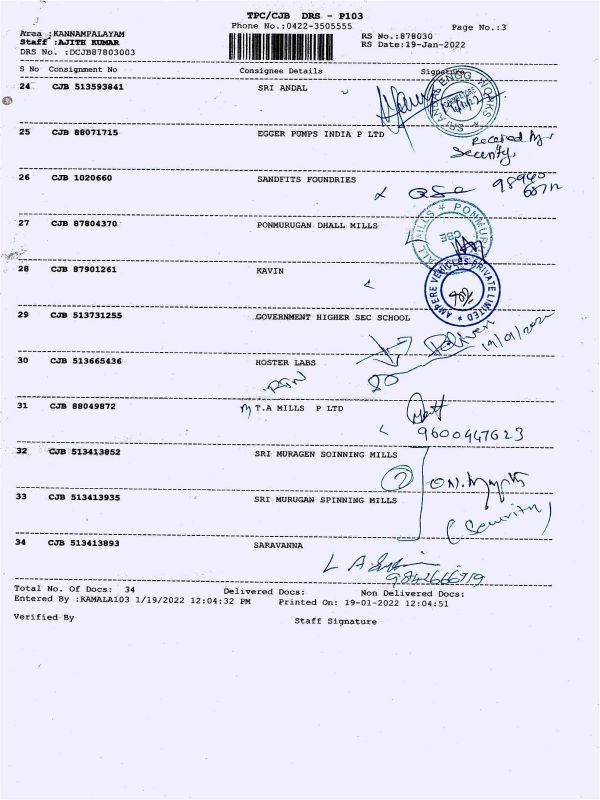 TPC/CJB DRS - P103
Phone No.:0422-3505555
Page No.:3
Area :KANNAMPALAYAM
RS No.:878030
Staff :AJITH KUMAR
RS Date:19-Jan-2022
DRS No. :DCJB87803003
S No Consignment No Consignee Details Signature
24 CJB 513593841 SRI ANDAL
ENGG WORKS
25 CJB 88071715 EGGER PUMPS INDIA P LTD
Received by
Security
26 CJB 1020660 SANDFITS FOUNDRIES
27 CJB 87804370 PONMURUGAN DHALL MILLS
MILLS * PONMUR
CBE
28 CJB 87901261 KAVIN
AMPERE VEHICLES PRIVATE LIMITED
29 CJB 513731255 GOVERNMENT HIGHER SEC SCHOOL
19/01/2022
30 CJB 513665436 HOSTER LABS
31 CJB 88049872 T.A MILLS P LTD
9600447623
32 CJB 513413852 SRI MURAGEN SOINNING MILLS
33 CJB 513413935 SRI MURUGAN SPINNING MILLS
(Security)
34 CJB 513413893 SARAVANNA
Total No. Of Docs: 34 Delivered Docs: Non Delivered Docs:
Entered By :KAMALA103 1/19/2022 12:04:32 PM Printed On: 19-01-2022 12:04:51
Verified By
Staff Signature